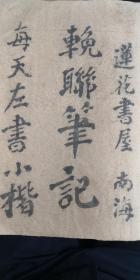 蓮花書屋 南海
輓聯筆記
每天左書小楷